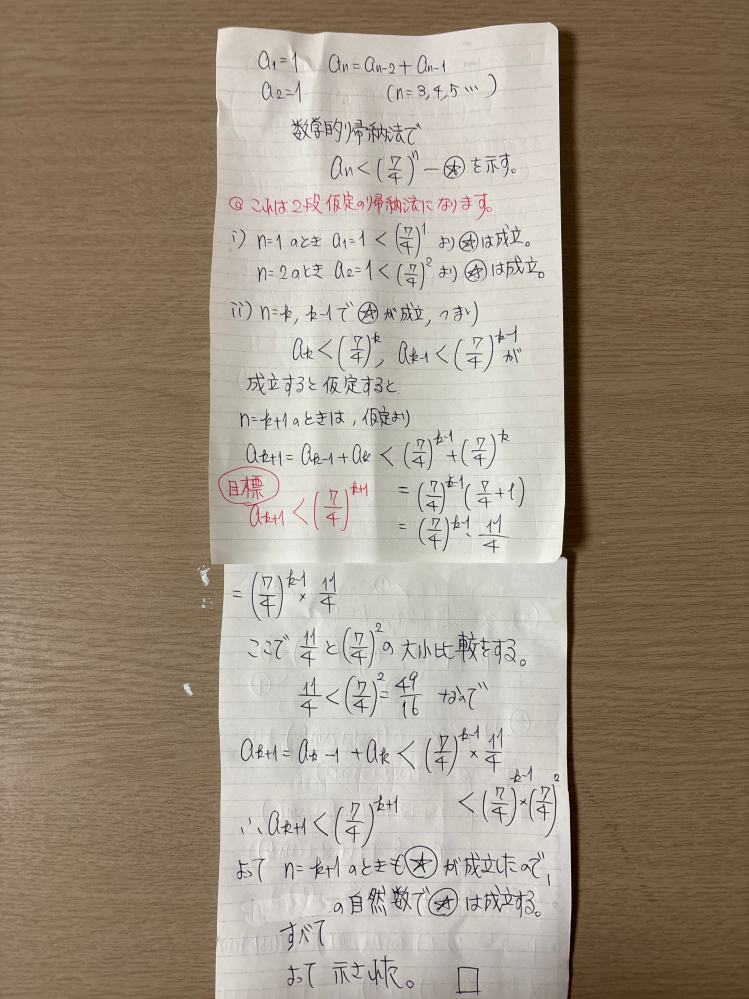 a₁=1 aₙ=aₙ₋₂+aₙ₋₁
a₂=1 (n=3,4,5…)
数学的帰納法で
aₙ<(7/4)ⁿ−⍟を示す。
@ これは2段仮定の帰納法になります。
i) n=1のとき a₁=1<(7/4)¹ より⍟は成立。
n=2のとき a₂=1<(7/4)² より⍟は成立。
ii) n=k, k-1で⍟が成立, つまり
aₖ<(7/4)ᵏ, aₖ₋₁<(7/4)ᵏ⁻¹が
成立すると仮定すると
n=k+1のときは, 仮定より
aₖ₊₁=aₖ₋₁+aₖ<(7/4)ᵏ⁻¹+(7/4)ᵏ
目標
=(7/4)ᵏ⁻¹(7/4+1)
aₖ₊₁<(7/4)ᵏ⁺¹
=(7/4)ᵏ⁻¹・11/4
=(7/4)ᵏ⁻¹×11/4
ここで11/4と(7/4)²の大小比較をする。
11/4<(7/4)²=49/16 なので
aₖ₊₁=aₖ₋₁+aₖ<(7/4)ᵏ⁻¹×11/4
<(7/4)ᵏ⁻¹×(7/4)²
∴aₖ₊₁<(7/4)ᵏ⁺¹
よって n=k+1のときも⍟が成立したので,
の自然数で⍟は成立する。
すべて
よって 示された。 □